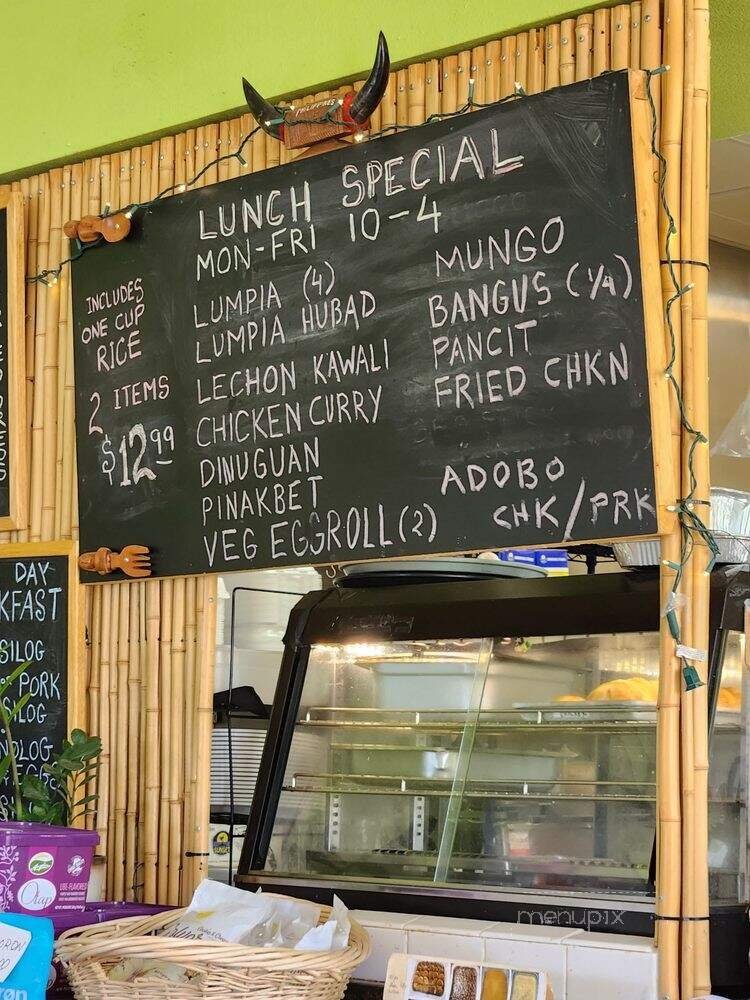 PHILIPPINES
LUNCH SPECIAL
MON-FRI 10-4
INCLUDES
ONE CUP
RICE
2 ITEMS
$12.99
LUMPIA (4)
LUMPIA HUBAD
LECHON KAWALI
CHICKEN CURRY
DINUGUAN
PINAKBET
VEG EGGROLL (2)
MUNGO
BANGUS (1/4)
PANCIT
FRIED CHKN
ADOBO
CHK/PRK
DAY
KFAST
SILOG
PORK
SILOG
Otap
UBE-FLAVORED
menupix